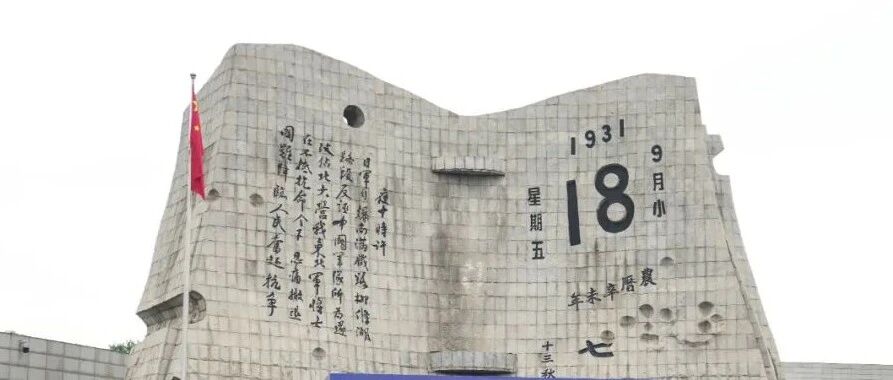 1931
9月小
18
星期五
農曆辛未年
七
十三秋
夜十時許
日軍自爆南滿鐵路柳條湖
路段反誣中國軍隊所為遂
攻佔北大營我東北軍將士
在不抵抗命令下忍痛撤退
國難降臨人民奮起抗爭